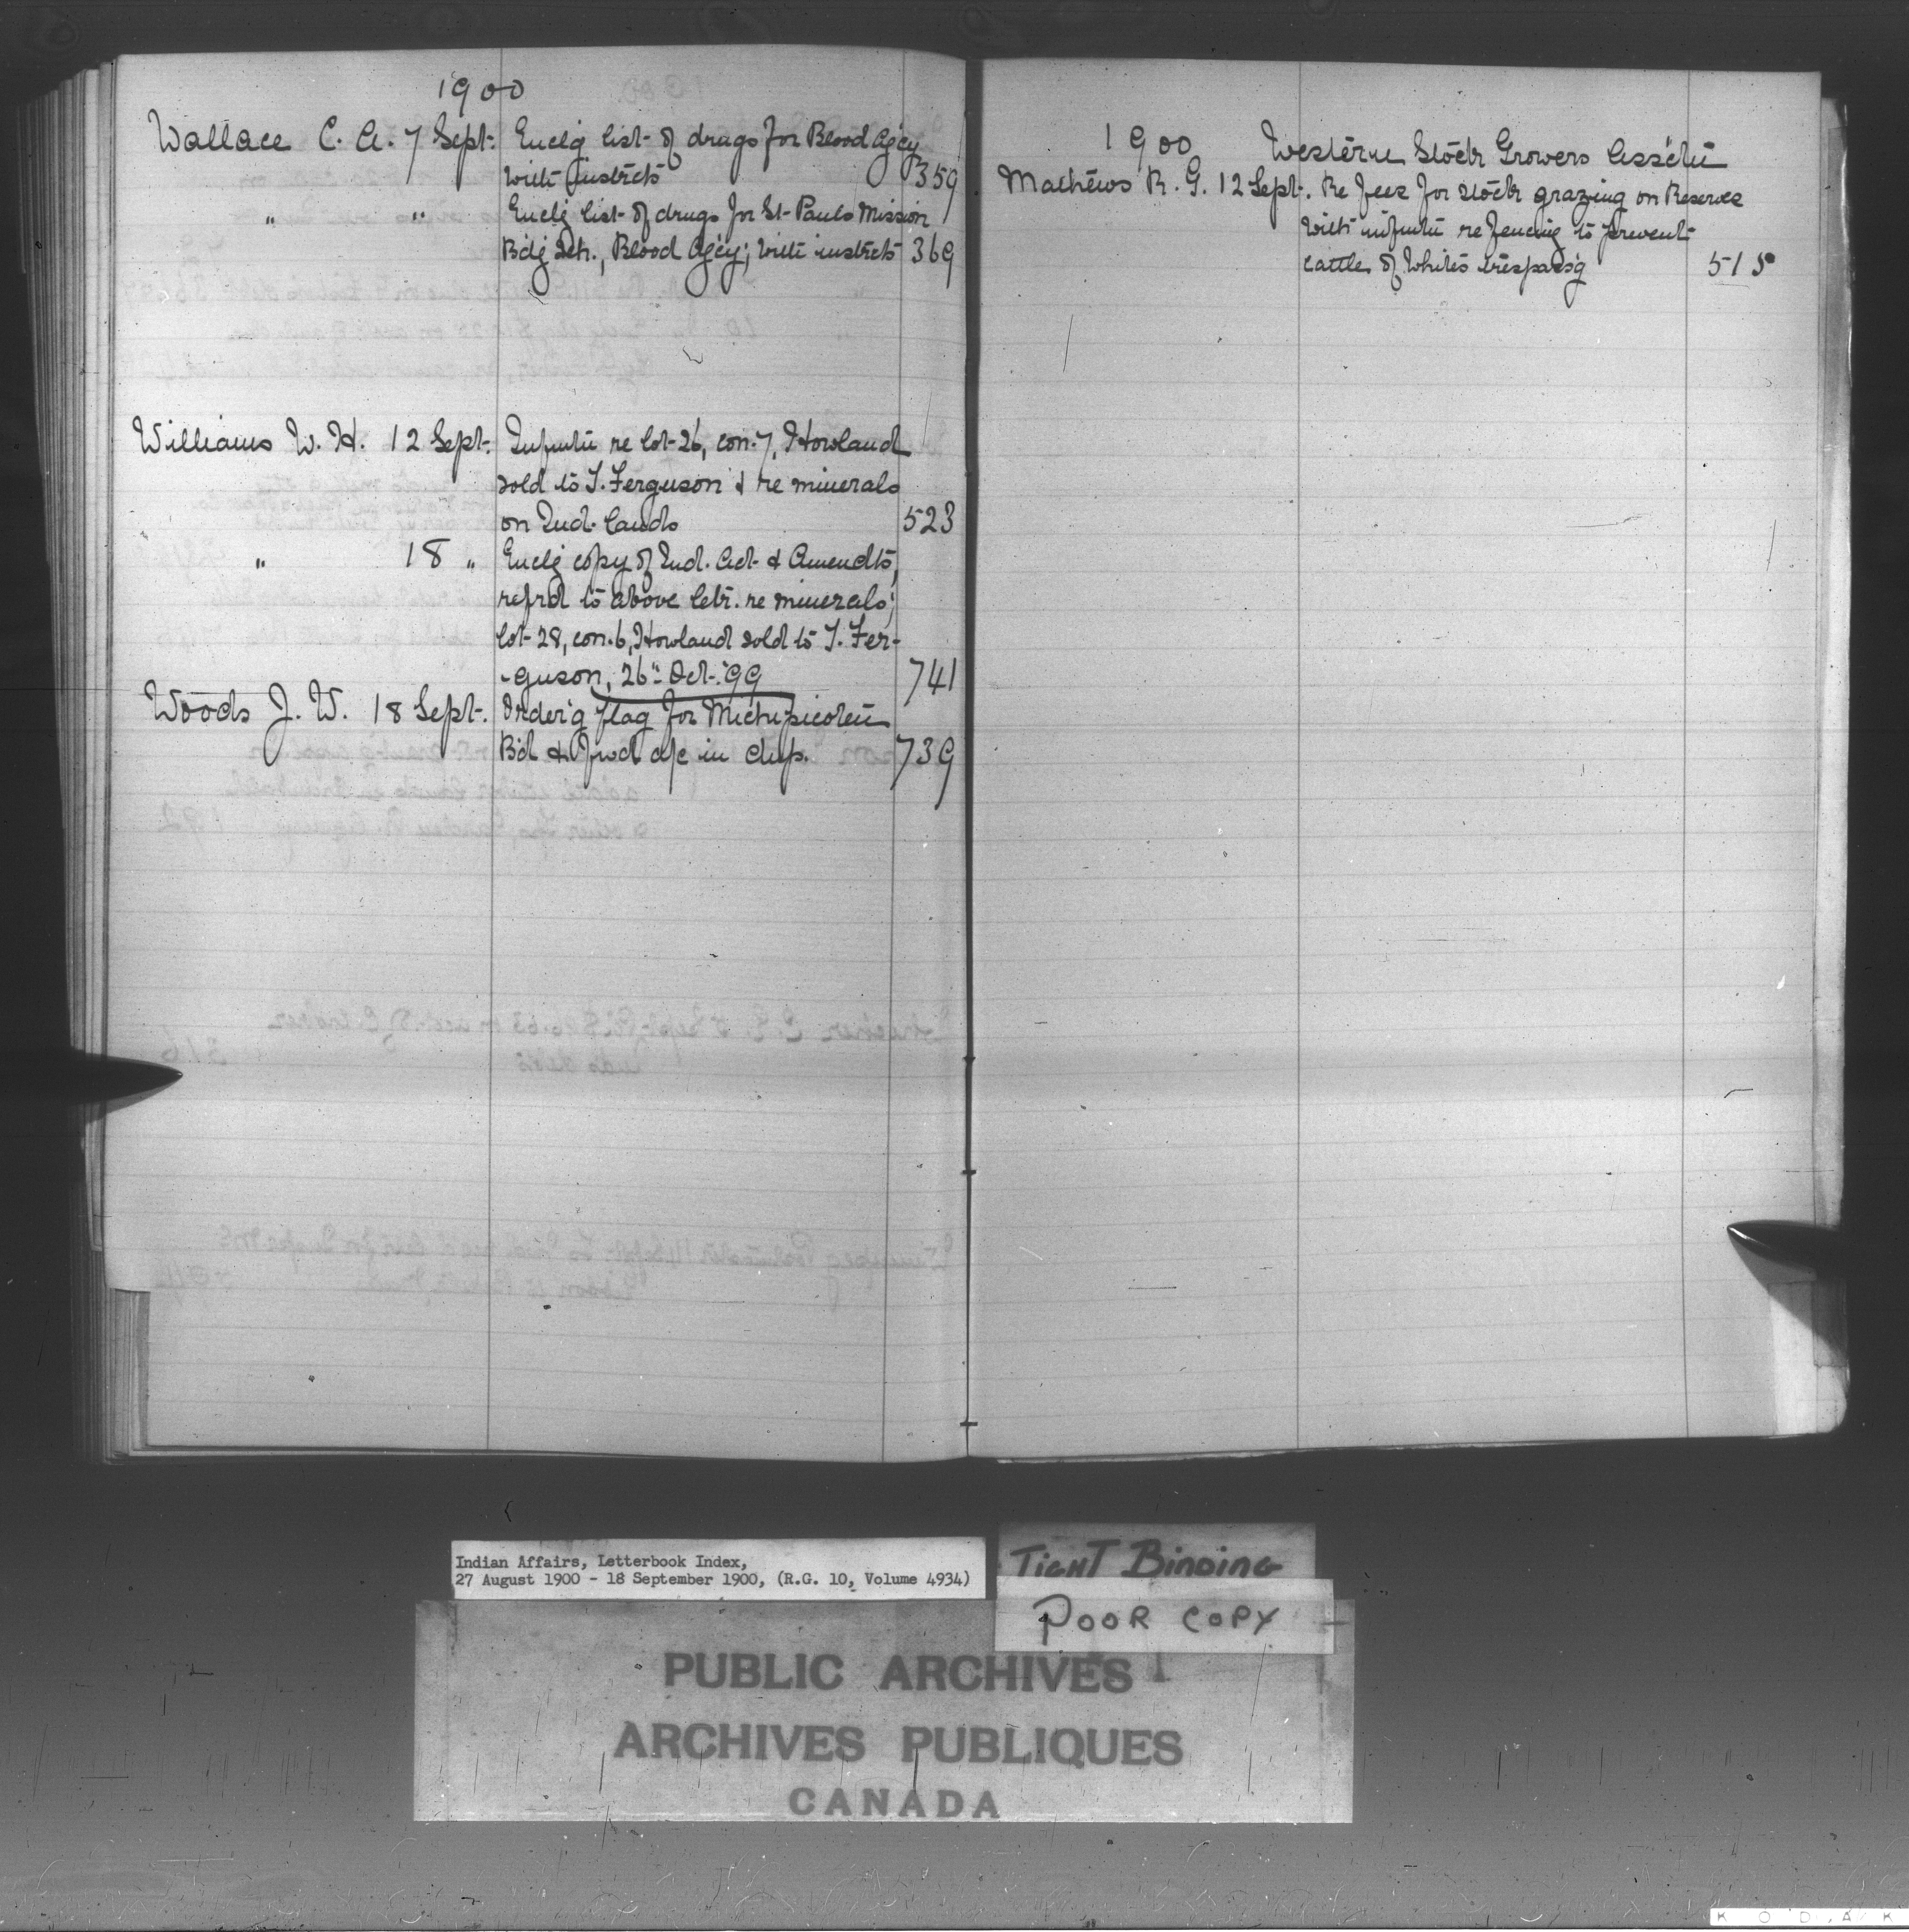 1900
Wallace C. A. 7 Sept. Enclg list of drugs for Blood Agcy
with instrcts 359
" " Enclg list of drugs for St Pauls Mission
Bdg Sch., Blood Agcy; with instrcts 369
Williams W. H. 12 Sept. Infmtn re lot 26, con. 7, Howland
sold to T. Ferguson & re minerals
on Ind. lands 523
" 18 " Enclg copy of Ind. Act & Amendts,
refrd to above letr. re minerals;
lot 28, con. 6, Howland sold to T. Fer-
-guson, 26" Oct. '99 741
Woods J. W. 18 Sept. Order'g flag for Michipicoten
Bd & fwd a/c in dup. 739
1900 Western Stock Growers Ass'ctn
Mathews R. G. 12 Sept. Re fees for stock grazing on Reserves
with infmtn re fencing to prevent
cattle of Whites trespass'g 515
Indian Affairs, Letterbook Index,
27 August 1900 - 18 September 1900, (R.G. 10, Volume 4934)
TIGHT BINDING
POOR COPY
PUBLIC ARCHIVES
ARCHIVES PUBLIQUES
CANADA
KODAK